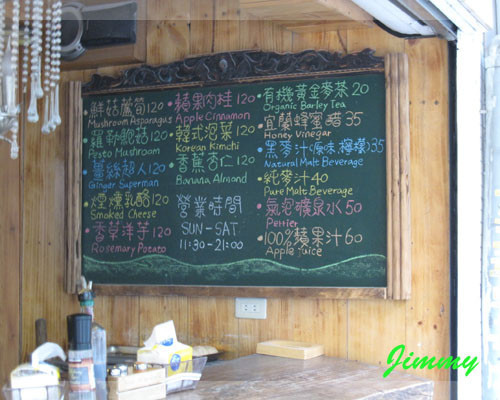 鮮菇蘆筍120
Mushroom Asparagus
羅勒鮑菇120
Pesto Mushroom
薑絲超人120
Ginger Superman
煙燻乳酪120
Smoked Cheese
香草洋芋120
Rosemary Potato
蘋果肉桂120
Apple Cinnamon
韓式泡菜120
Korean Kimchi
香蕉杏仁120
Banana Almond
營業時間
SUN-SAT
11:30-21:00
有機黃金麥茶20
Organic Barley Tea
宜蘭蜂蜜醋35
Honey Vinegar
黑麥汁(原味.檸檬)35
Natural Malt Beverage
純麥汁40
Pure Malt Beverage
氣泡礦泉水50
Perrier
100%蘋果汁60
Apple juice
Jimmy